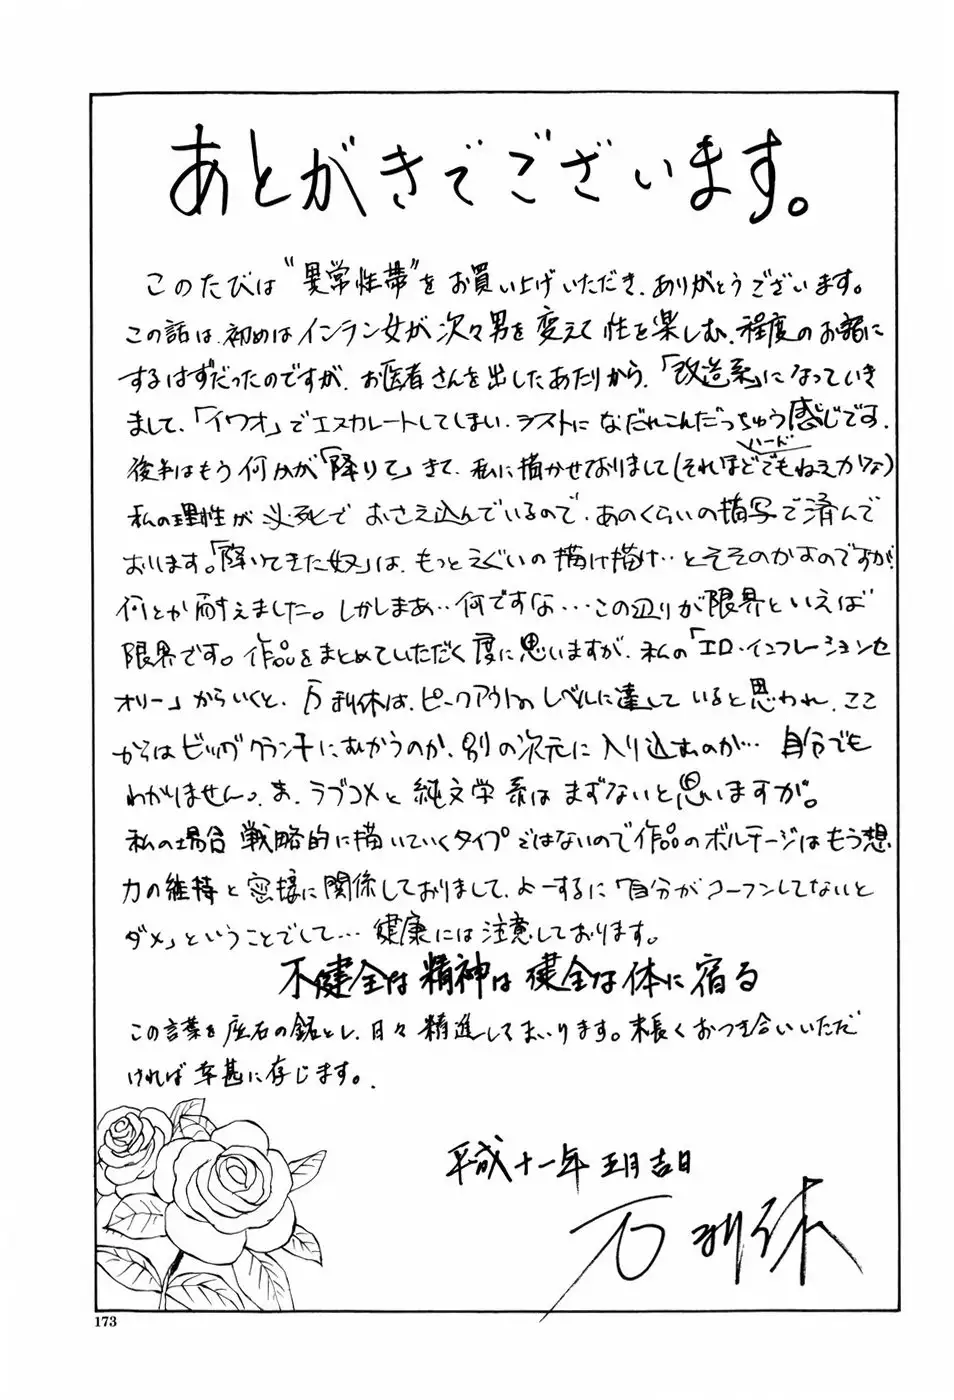 あとがきでございます。
このたびは“異常性帯”をお買い上げいただき、ありがとうございます。
この話は、初めはインラン女が次々男を変えて性を楽しむ、程度のお話に
するはずだったのですが、お医者さんを出したあたりから、「改造系」になっていき
まして、「イワオ」でエスカレートしてしまい、ラストになだれこんだっちゅう感じです。
後半はもう何かが「降りて」きて、私に描かせておりまして(それほどハードでもねえかな)
私の理性が必死でおさえ込んでいるので、あのくらいの描写で済んで
おります。「降りてきた奴」は、もっとえぐいの描け描け‥とそそのかすのですが、
何とか耐えました。しかしまあ‥何ですな…この辺りが限界といえば
限界です。作品をまとめていただく度に思いますが、私の「エロ・インフレーションセ
オリー」からいくと、万利休は、ピークアウトのレベルに達していると思われ、ここ
からはビッグクランチにむかうのか、別の次元に入り込むのか…自分でも
わかりません。ま、ラブコメと純文学系はまずないと思いますが。
私の場合戦略的に描いていくタイプではないので作品のボルテージはもう想
力の維持と密接に関係しておりまして、よーするに「自分がコーフンしてないと
ダメ」ということでして…健康には注意しております。
不健全な精神は健全な体に宿る
この言葉を座右の銘とし、日々精進してまいります。末長くおつき合いいただ
ければ幸甚に存じます。
平成十一年五月吉日
万利休
173